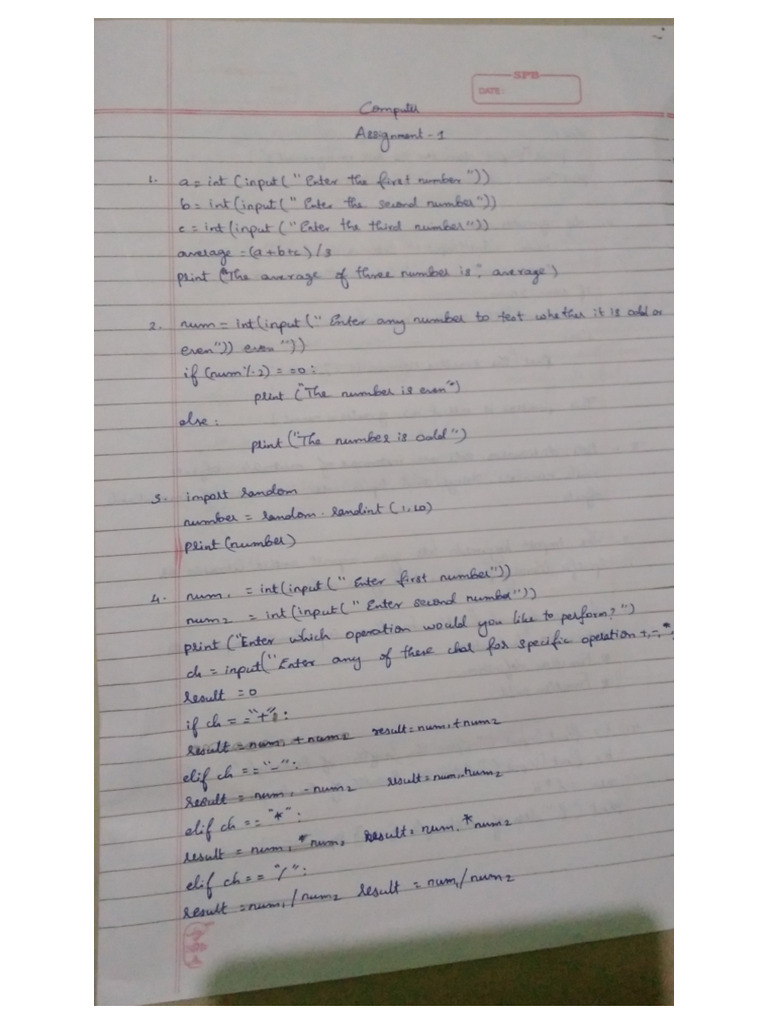 SPB
DATE:
Computer
Assignment - 1
1. a = int (input (" Enter the first number "))
b = int (input (" Enter the second number"))
c = int (input ("Enter the third number"))
average = (a+b+c)/3
print ("The average of three number is", average)
2. num = int(input (" Enter any number to test whether it is odd or
even")) even "))
if (num % 2) = =0:
print ("The number is even")
else:
print ("The number is odd")
3. import random
number = random.randint (1,20)
print (number)
4. num1 = int (input (" Enter first number"))
num2 = int (input (" Enter second number"))
print ("Enter which operation would you like to perform? ")
ch = input("Enter any of these char for specific operation +,-,*
result = 0
if ch = = "+":
result = num1 + num2 result = num1 + num2
elif ch == "-":
result = num1 - num2 result = num1 - num2
elif ch == "*":
result = num1 * num2 result = num1 * num2
elif ch == "/":
result = num1 / num2 result = num1 / num2